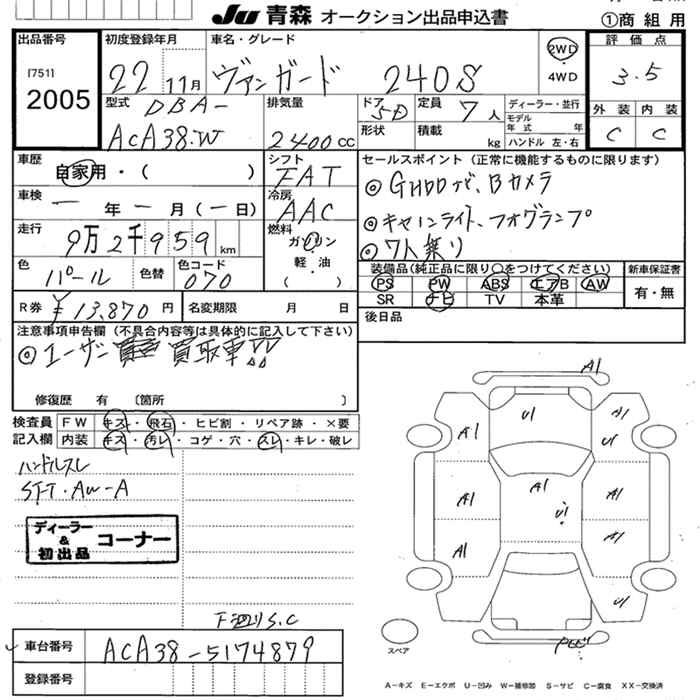 JU 青森 オークション出品申込書
①商 組 用
出品番号
[751]
2005
初度登録年月
22 11月
車名・グレード
ヴァンガード 240S
2WD
・
4WD
評 価 点
3.5
外 装 内 装
C C
型式
DBA-
ACA38.W
排気量
2400 CC
ドア
5D
定員
7 人
形状
積載
kg
ディーラー・並行
モデル
年 式 年
ハンドル 左・右
車歴
自家用・( )
シフト
FAT
車検
一 年 一 月 (一 日)
冷房
AAC
走行
9万2千959 km
燃料
ガソリン
・
軽 ・ 油
( )
色
パール
色替
色コード
070
セールスポイント (正常に機能するものに限ります)
◎ GHDDナビ、Bカメラ
◎キセノンライト、フォグランプ
◎7人乗り
装備品(純正品に限り○をつけてください)
PS PW ABS エアB AW
SR ナビ TV 本革
新車保証書
有・無
後日品
R券 ¥13,870 円
名変期限 月 日
注意事項申告欄 (不具合内容等は具体的に記入して下さい)
◎ユーザー 買取車!!
修復歴 有 〔箇所 〕
検査員
記入欄
FW キズ・飛石・ヒビ割・リペア跡・×要
内装 キズ・汚レ・コゲ・穴・スレ・キレ・破レ
ハンドルスレ
SFT・AW-A
ディーラー
&
初出品
コーナー
下廻りS.C
車台番号 ACA38-5174879
登録番号
A1
U1
A1
A1
U1
A1
A1
U1
A1
A1
A1
U1
スペア
A-キズ E-エクボ U-凹み W-補修跡 S-サビ C-腐食 XX-交換済